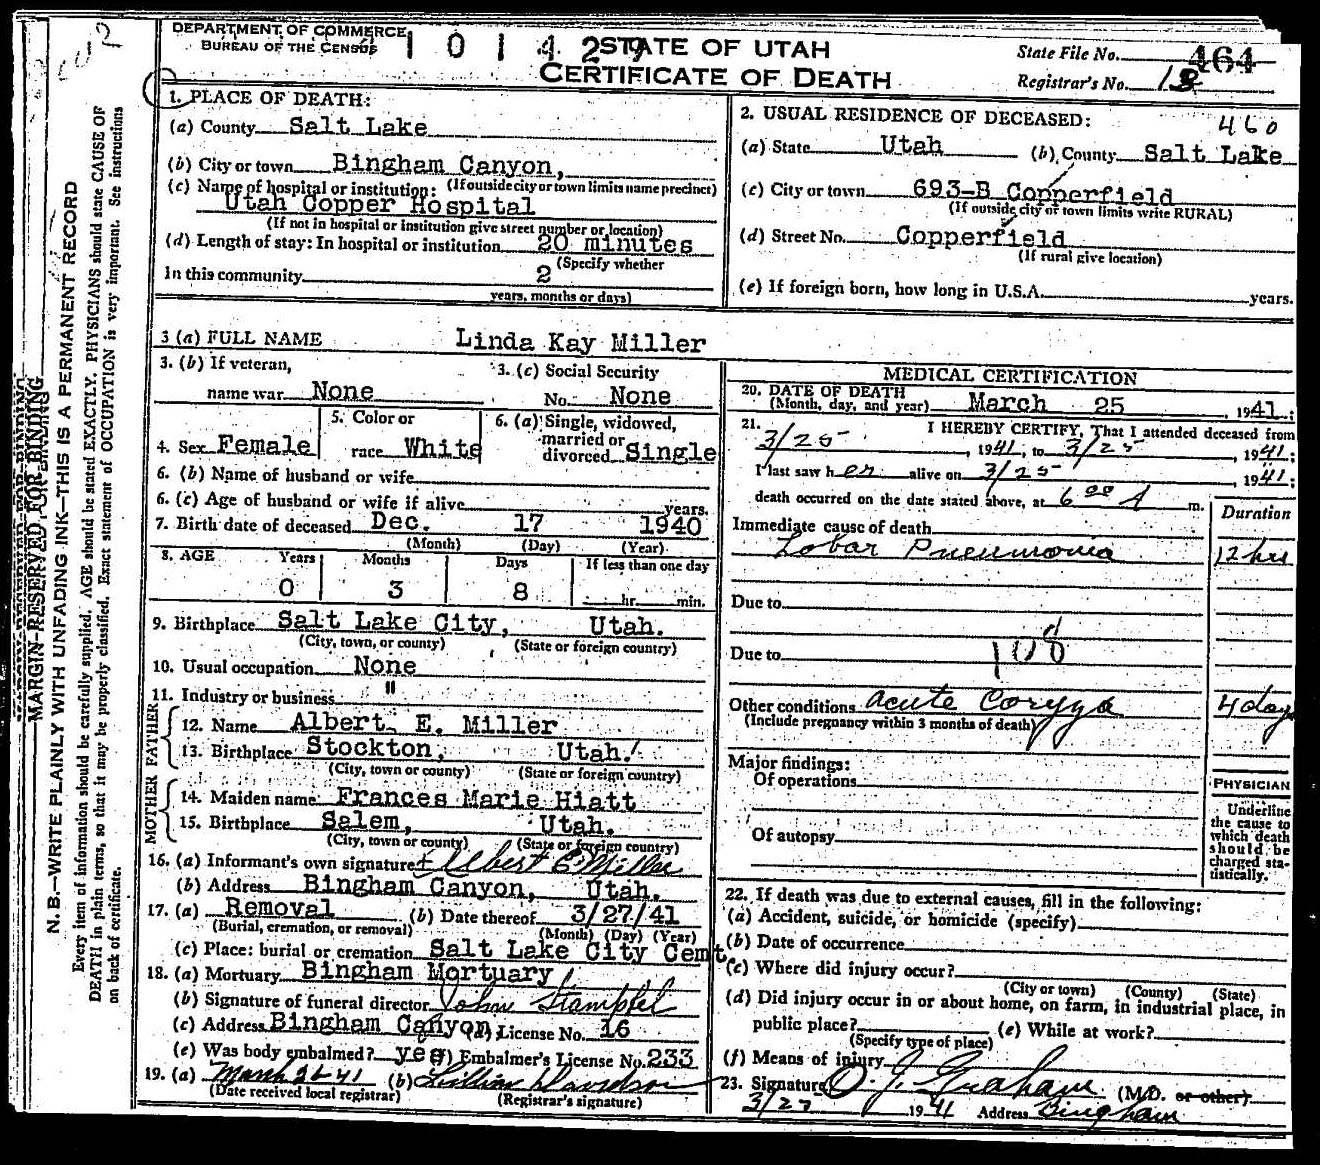 DEPARTMENT OF COMMERCE
BUREAU OF THE CENSUS
1 0 1 4 2 9
STATE OF UTAH
CERTIFICATE OF DEATH
State File No. 464
Registrar's No. 18
1. PLACE OF DEATH:
(a) County Salt Lake
(b) City or town Bingham Canyon,
(If outside city or town limits name precinct)
(c) Name of hospital or institution:
Utah Copper Hospital
(If not in hospital or institution give street number or location)
(d) Length of stay: In hospital or institution 20 minutes
(Specify whether
In this community 2
years, months or days)
2. USUAL RESIDENCE OF DECEASED:
460
(a) State Utah (b) County Salt Lake
(c) City or town 693-B Copperfield
(If outside city or town limits write RURAL)
(d) Street No. Copperfield
(If rural give location)
(e) If foreign born, how long in U.S.A. years.
3 (a) FULL NAME Linda Kay Miller
3. (b) If veteran,
name war None
3. (c) Social Security
No. None
4. Sex Female
5. Color or
race White
6. (a) Single, widowed,
married or
divorced Single
6. (b) Name of husband or wife
6. (c) Age of husband or wife if alive years.
7. Birth date of deceased Dec. 17 1940
(Month) (Day) (Year)
8. AGE Years Months Days If less than one day
0 3 8 hr. min.
9. Birthplace Salt Lake City, Utah.
(City, town, or county) (State or foreign country)
10. Usual occupation None
11. Industry or business "
FATHER
12. Name Albert E. Miller
13. Birthplace Stockton, Utah.
(City, town or county) (State or foreign country)
MOTHER
14. Maiden name Frances Marie Hiatt
15. Birthplace Salem, Utah.
(City, town or county) (State or foreign country)
16. (a) Informant's own signature Albert E Miller
(b) Address Bingham Canyon, Utah.
17. (a) Removal (b) Date thereof 3/27/41
(Burial, cremation, or removal) (Month) (Day) (Year)
(c) Place: burial or cremation Salt Lake City Cemt.
18. (a) Mortuary Bingham Mortuary
(b) Signature of funeral director John Stampfel
(c) Address Bingham Canyon, (d) License No. 16
(e) Was body embalmed? yes (f) Embalmer's License No. 233
19. (a) March 26-41 (b) Lillian Davidson
(Date received local registrar) (Registrar's signature)
MEDICAL CERTIFICATION
20. DATE OF DEATH
(Month, day, and year) March 25, 1941;
21. I HEREBY CERTIFY, That I attended deceased from
3/25, 1941, to 3/25, 1941;
I last saw her alive on 3/25, 1941;
death occurred on the date stated above, at 6 00 A m.
Duration
Immediate cause of death
Lobar Pneumonia 12 hrs
Due to
Due to 108
Other conditions Acute Coryza 4 days
(Include pregnancy within 3 months of death)
Major findings:
Of operations
Of autopsy
PHYSICIAN
Underline
the cause to
which death
should be
charged sta-
tistically.
22. If death was due to external causes, fill in the following:
(a) Accident, suicide, or homicide (specify)
(b) Date of occurrence
(c) Where did injury occur?
(City or town) (County) (State)
(d) Did injury occur in or about home, on farm, in industrial place, in
public place? (e) While at work?
(Specify type of place)
(f) Means of injury
23. Signature O. J. Graham (M.D. or other)
3/25 1941 Address Bingham
MARGIN RESERVED FOR BINDING
N. B.—WRITE PLAINLY WITH UNFADING INK—THIS IS A PERMANENT RECORD
Every item of information should be carefully supplied. AGE should be stated EXACTLY. PHYSICIANS should state CAUSE OF
DEATH in plain terms, so that it may be properly classified. Exact statement of OCCUPATION is very important. See instructions
on back of certificate.